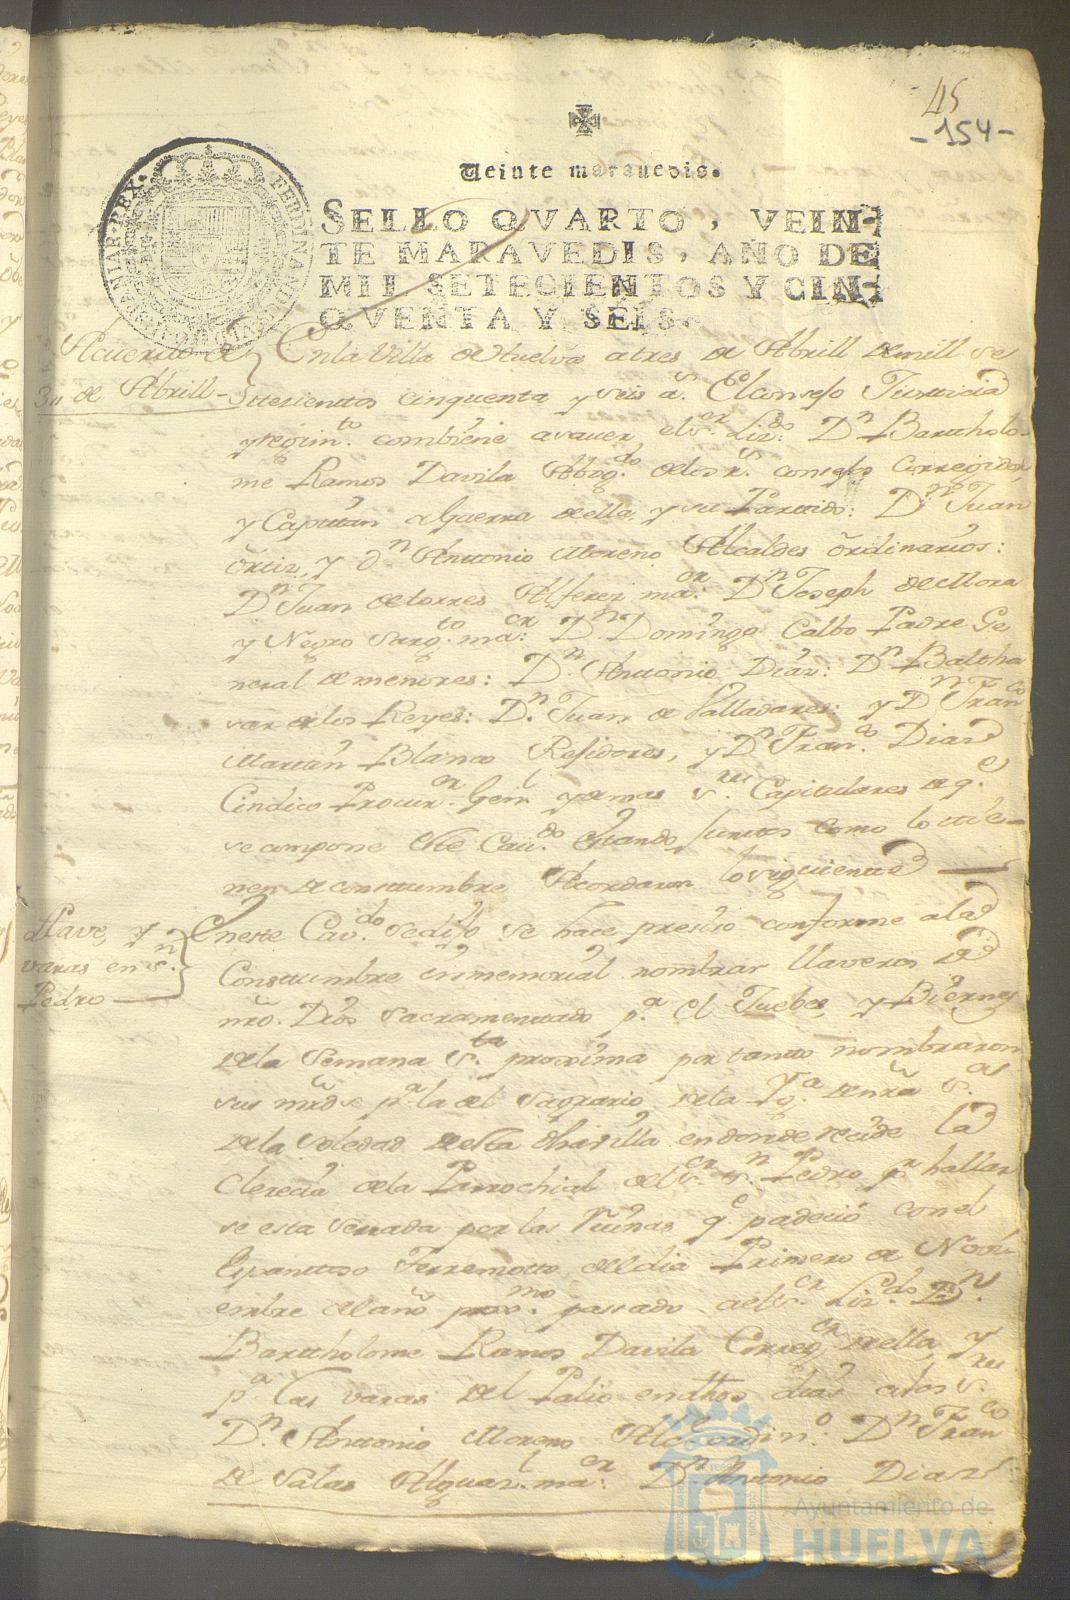 45
-154-
Veinte maravedis.
SELLO QVARTO, VEIN-
TE MARAVEDIS, AÑO DE
MIL SETECIENTOS Y CIN-
QVENTA Y SEIS.
FERDINANDUS
HISPANIAR·REX·
Acuerdo de
3,, de Abrill
En la Villa de Huelva a tres de Abrill de mill se
ttecientos cinquenta y seis a.s El consejo Justticia
y regim.to combiene a saver, el s.r Liz.do D.n Barttholo-
me Ramos Davila Abog.do de los r.s consejos Corregidor
y Capitan a Guerra de ella, y su Parttido: D.n Juan
Ortiz, y d.n Anttonio Moreno Alcaldes ordinarios:
D.n Juan de torres Alferez ma.or D.n Joseph de Mora
y Negro Sarg.to ma.or D.n Domingo Calbo Padre Ge
neral de menores: D.n Anttonio Diaz: D.n Baltha
sar de los Reyes: D.n Juan de Valladares: y D.n Fran.co
Martin Blanco Rejidores, y D.n Fran.co Diaz
Cindico Procur.or Gen.l y demas s.res Capitulares de q.e
se compone este Cav.do estando Juntos como lo tie-
nen de costtumbre Acordaron lo siguiente
Llave, y
varas en S.n
Pedro
En este Cav.do se dijo se hace presiso conforme a la
Costtumbre inmemorial nombrar llaveros de
nro. Dios Sacramentado p.a el Juebes, y Biernes
de la Semana S.ta proxima por tantto nombraron
sus mrds p.a la del Sagrario de la Yg.a de nra S.a
de la Soledad de esta dha villa en donde recide la
Clerecia de la Parrochial de el s.or S.n Pedro p.r hallar
se esta serrada por las Ruinas q.e padeció con el
Espanttoso Terremotto de el dia Primero de Novi-
embre de el año prox.mo pasado a el s.or Liz.do D.n
Barttholome Ramos Davila Correg.or de ella, y
p.a las varas del Palio en dhos dias a los s.res
D.n Anttonio Moreno Alc.e ordin.o D.n Fran.co
de Salas Alguaz.l ma.or D.n Antonio Diaz
Ayuntamiento de
HUELVA